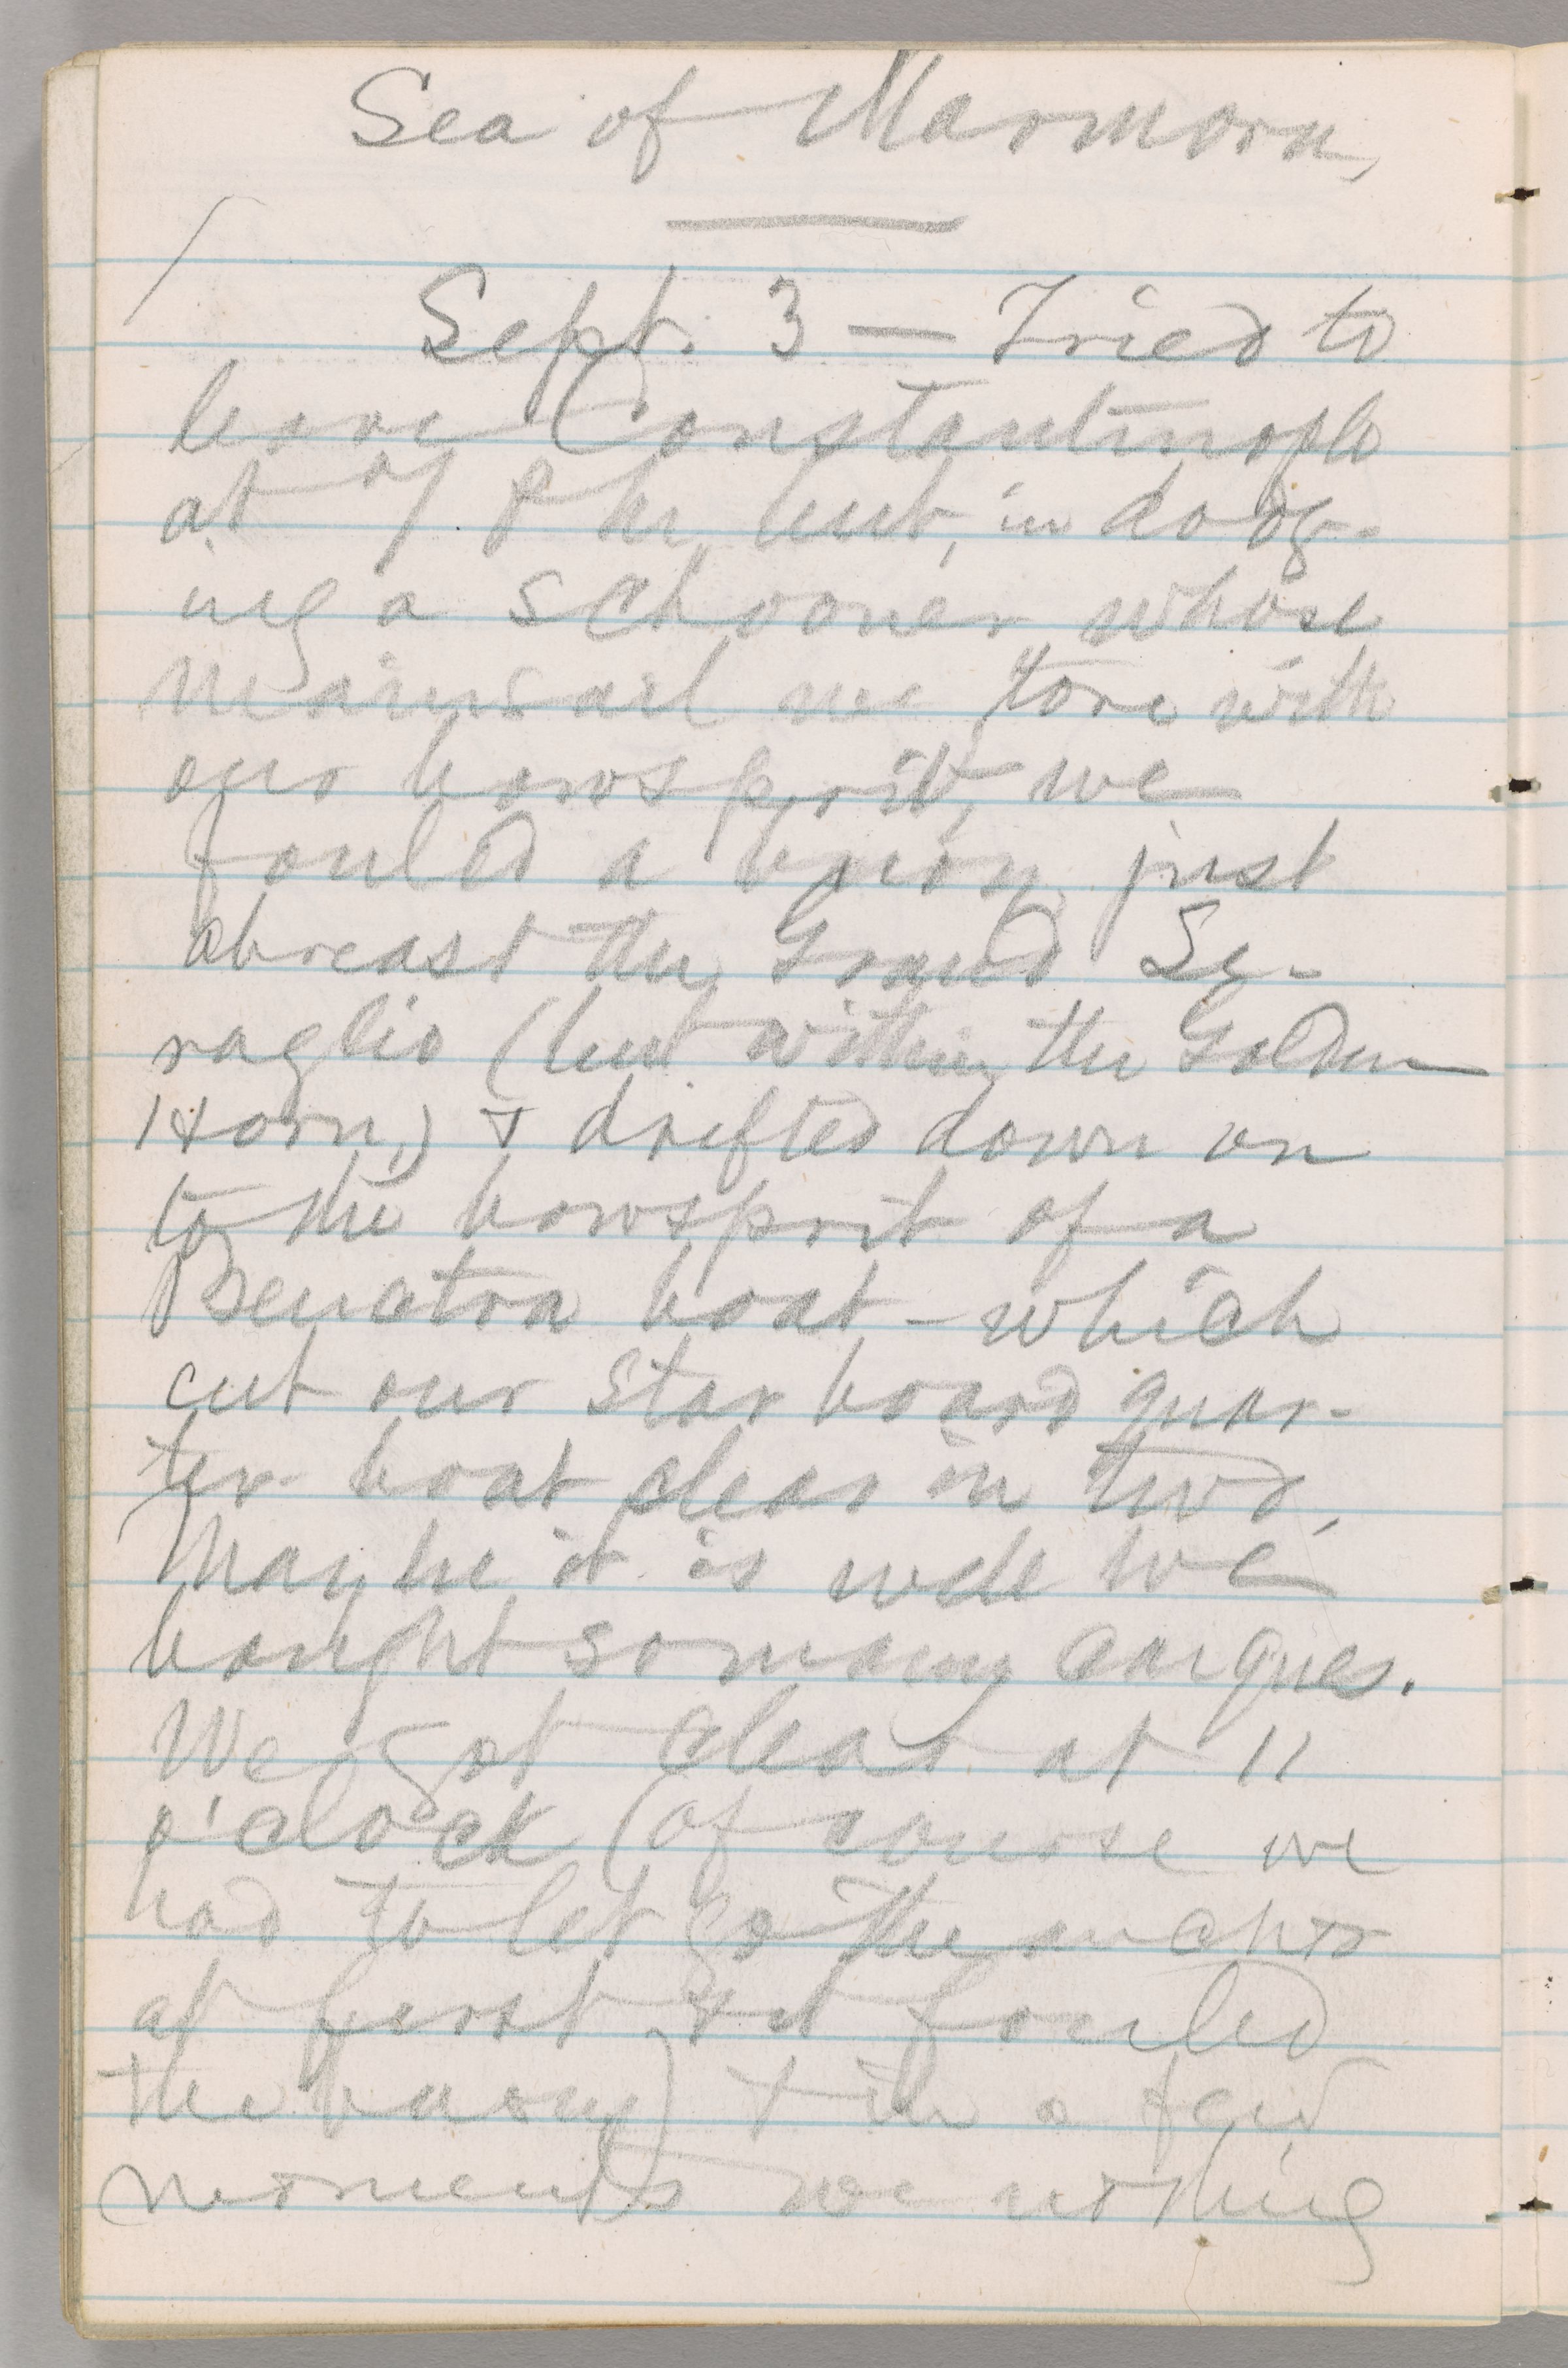 Sea of Marmora,
Sept. 3 — Tried to
leave Constantinople
at but, in dodg-
ing a schooner whose
mainsail we tore with
our bowsprit, we
fouled a buoy just
abreast the Grand Se-
raglio (but within the Golden
Horn,) & drifted down on
to the bowsprit of a
boat – which
cut our starboard quar-
ter-boat clear in two.
Maybe it is well we
bought so many caiques.
We got clear at 11
o'clock (of course we
had to let go the anchor
at first & it fouled
the buoy) & in a few
moments we nothing